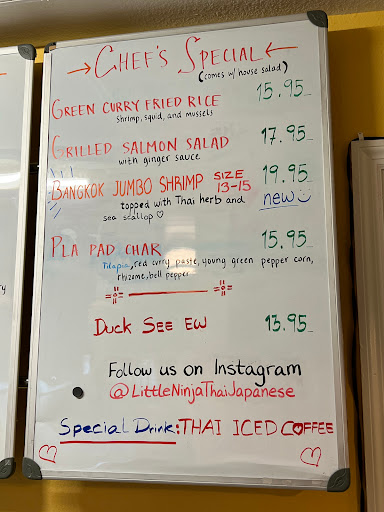 → CHEF'S SPECIAL ←
(comes w/ house salad)
GREEN CURRY FRIED RICE 15.95
shrimp, squid, and mussels
GRILLED SALMON SALAD 17.95
with ginger sauce
BANGKOK JUMBO SHRIMP SIZE 13-15 19.95
topped with Thai herb and new
sea scallop ♡
PLA PAD CHAR 15.95
Tilapia, red curry paste, young green pepper corn,
rhizome, bell pepper
DUCK SEE EW 13.95
Follow us on Instagram
@LittleNinjaThaiJapanese
Special Drink: THAI ICED COFFEE